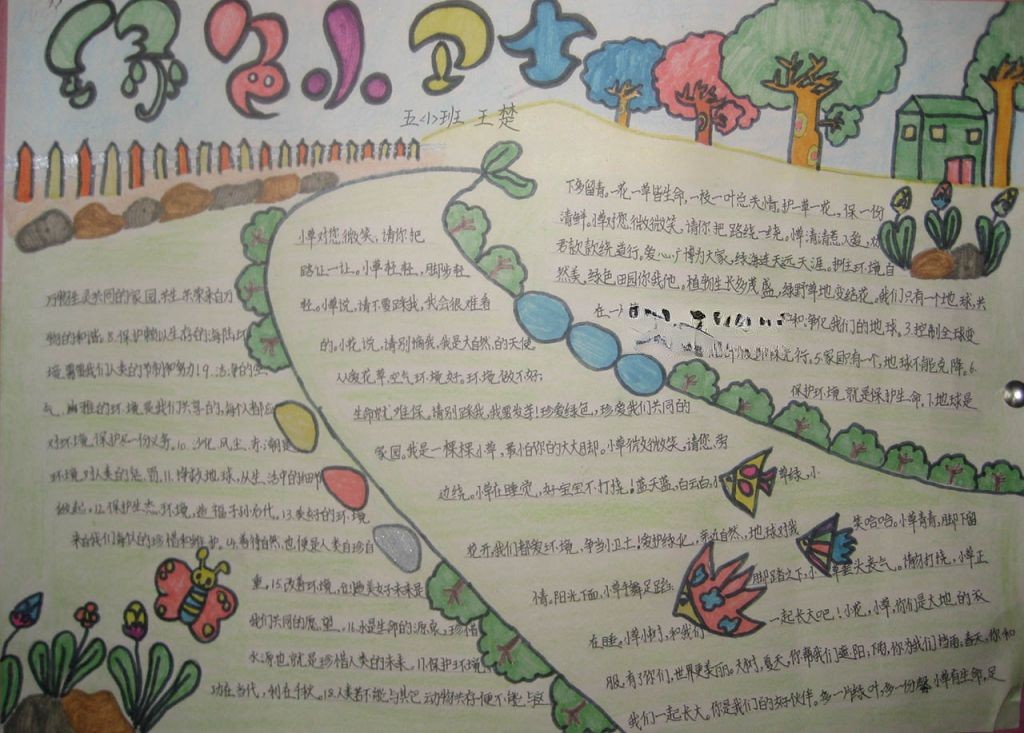 绿色小卫士
五<小>班 王楚
小草对您微微笑,请你把
路让一让。小草轻轻,脚步轻
轻。小草说,请不要踩我,我会很难看
的。小花说,请别摘我,我是大自然的天使
从爱花草,空气环境好。环境做不好;
生命就难保。请别踩我,我要发芽!珍爱绿色,珍爱我们共同的
家园,我是一棵棵小草,最怕你的大大脚。小草微微微笑,请您旁
边绕。小草在睡觉,好宝宝不打挠!蓝天蓝,白云白,小
草绿,小
花开,我们都爱环境,争当小卫士!爱护绿化,亲近自然,地球对我
笑哈哈。小草青青,脚下留
情,阳光下面,小草手舞足蹈;
脚踏之下,小草垂头丧气。请勿打挠,小草正
在睡。小草小树,和我们
一起长大吧!小花,小草,你们是大地的衣
服,有了你们,世界更美丽。大树,夏天,你帮我们遮阳,下雨,你为我们挡雨,春天,你和
我们一起长大。你是我们的好伙伴。多一片绿叶,多一份馨。小草有生命,足
下多留青。一花一草皆生命,一枝一叶总关情。护一草一花。保一份
清鲜。小草对您微微微笑,请你把路绕一绕。小草清清惹人爱,对
君款款绕道行。爱心广博为大家,绿海连天远天涯。拥住环境自
然美,绿色田园你我他。植物生长多茂盛,绿野草地变结花。我们只有一个地球,共
在一
和净化我们的地球。3.控制全球变
行。5.家园有一个,地球不能克隆。6.
保护环境就是保护生命。7.地球是
万物生灵共同的家园,共生共荣来自万
物的和谐。8.保护赖以生存的海陆环
境,需要我们人类的节制和努力!9.洁净的空
气,幽雅的环境是我们共享的,每个人都应
对环境保护尽一份义务。10.沙化、风尘、赤潮是
环境对人类的惩罚。11.拯救地球,从生活中的细节
做起。12.保护生态环境,造福子孙后代。13.美好的环境
来自我们每个人的珍惜和维护。14.善待自然,也便是人类自珍自
重。15.改善环境,创造美好未来是
我们共同的愿望。16.水是生命的源泉,珍惜
水源也就是珍惜人类的未来。17.保护环境,
功在当代,利在千秋。18.人类若不能与其它动物共存,便不能与这